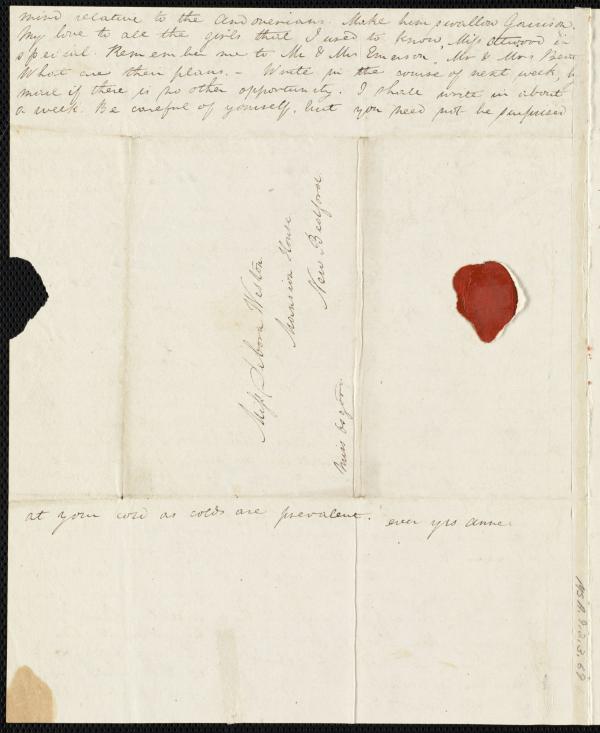 mind relative to the Andoverians. Make him swallow Garrison.
My love to all the girls that I used to know, Miss Atwood in
special. Remember me to Mr & Mrs Emerson, Mr & Mrs
What are their plans. - Write in the course of next week, by
mail if there is no other opportunity. I shall write in about
a week. Be careful of yourself, but you need not be surprised
Miss Debora Weston
Mansion House
New Bedford
Miss
at your cold as colds are prevalent. ever yrs Anne.
MS.A.9.2.3.69